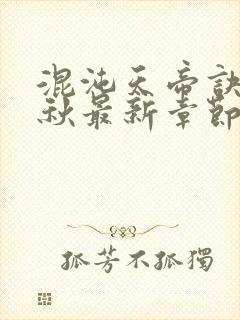 混沌天帝訣
秋最新章節
孤芳不孤獨